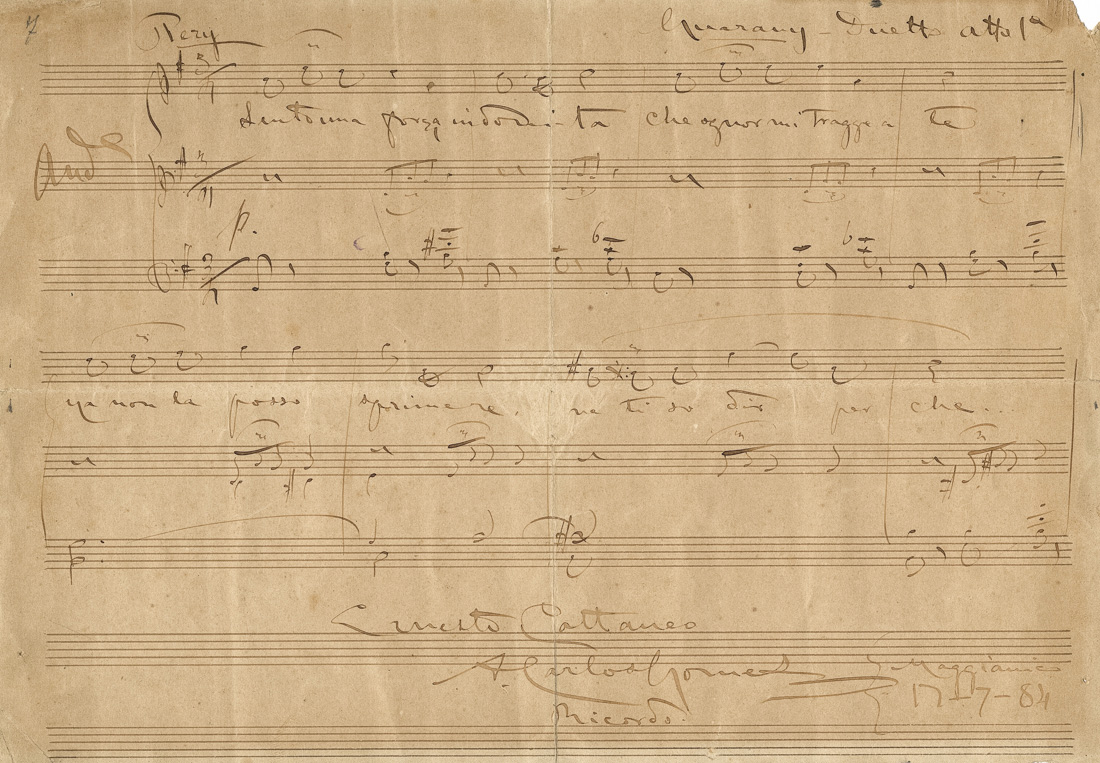 7
Pery
Guarany - Duetto atto 1º
Sento una forza indomita che ognor mi tragge a te
And
p.
ma non la posso sprimere, ne ti so dir per che...
Ernesto Cattaneo
A. Carlos Gomes
Maggianico
17-7-84
Ricordo.